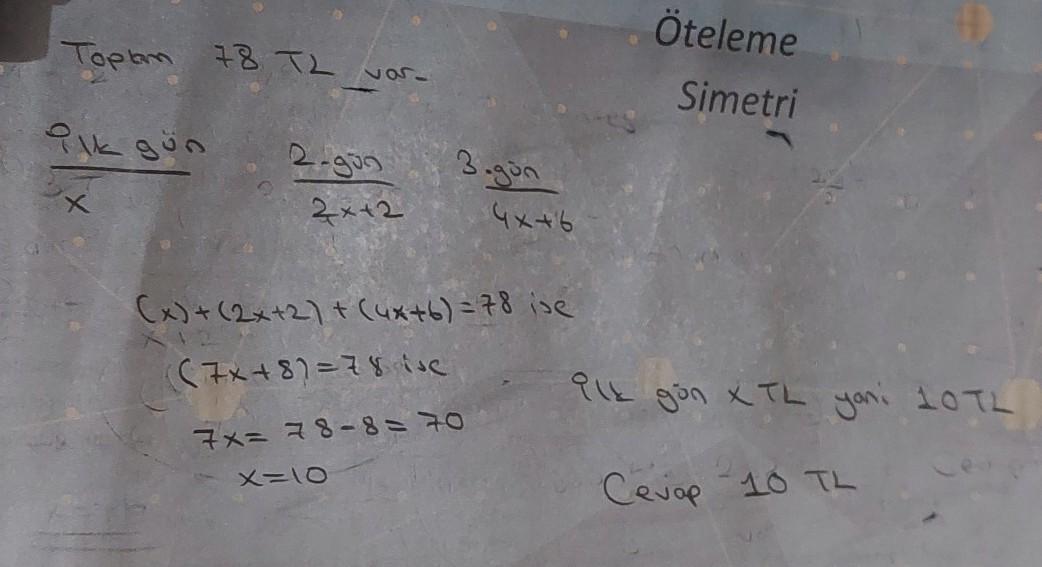 Öteleme
Simetri
Toplam 78 TL var
İlk gün 2.gün 3.gün
x 2x+2 4x+6
(x)+(2x+2)+(4x+6)=78 ise
(7x+8)=78 ise
7x= 78-8=70
x=10
İlk gün x TL yani 10TL
Cevap 10 TL